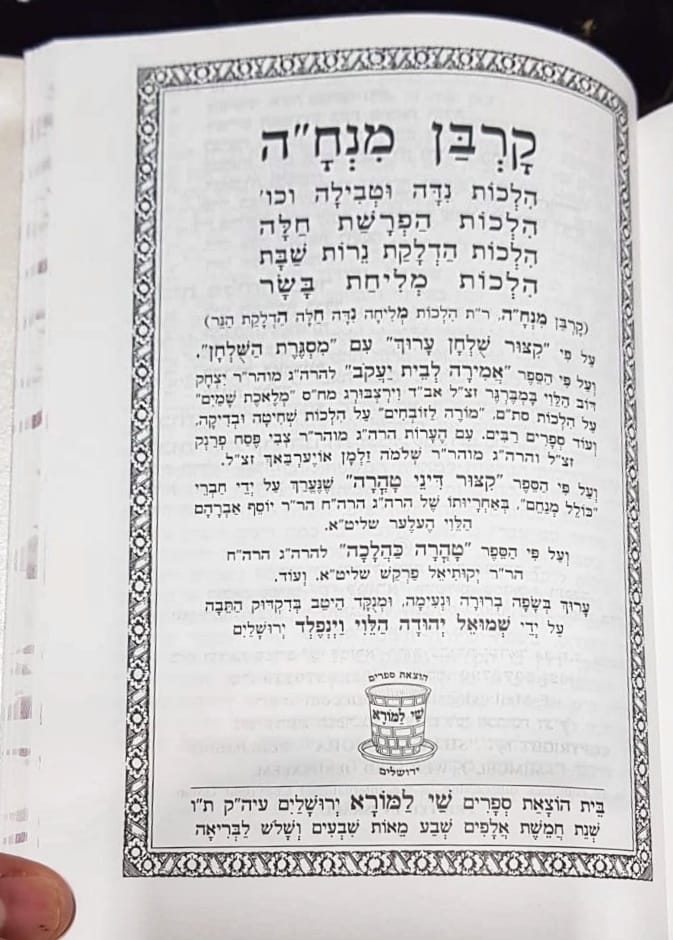 קָרְבַּן מִנְחָ״ה
הִלְכוֹת נִדָּה וּטְבִילָה וכו׳
הִלְכוֹת הַפְרָשַׁת חַלָּה
הִלְכוֹת הַדְלָקַת נֵרוֹת שַׁבָּת
הִלְכוֹת מְלִיחַת בָּשָׂר
(קָרְבַּן מִנְחָ״ה, ר״ת הִלְכוֹת מְלִיחָה נִדָּה חַלָּה הַדְלָקַת הַנֵּר)
עַל פִּי ״קִצּוּר שֻׁלְחָן עָרוּךְ״ עִם ״מִסְגֶּרֶת הַשֻּׁלְחָן״,
וְעַל פִּי הַסֵּפֶר ״אֲמִירָה לְבֵית יַעֲקֹב״ לְהרה״ג מוהר״ר יִצְחָק
דּוֹב הַלֵּוִי בַּמְבֶּרְגֶּר זצ״ל אב״ד וִירְצְבּוּרְג מח״ס ״מְלֶאכֶת שָׁמַיִם״
עַל הִלְכוֹת סת״ם, ״מוֹרֶה לַזּוֹבְחִים״ עַל הִלְכוֹת שְׁחִיטָה וּבְדִיקָה,
וְעוֹד סְפָרִים רַבִּים. עִם הֶעָרוֹת הרה״ג מוהר״ר צְבִי פֶּסַח פְרַנְק
זצ״ל והרה״ג מוהר״ר שְׁלֹמֹה זַלְמָן אוֹיֶערְבַּאךְ זצ״ל.
וְעַל פִּי הַסֵּפֶר ״קִצּוּר דִּינֵי טָהֳרָה״ שֶׁנֶּעֱרַךְ עַל יְדֵי חַבְרֵי
״כּוֹלֵל מְנַחֵם״, בְּאַחֲרָיוּתוֹ שֶׁל הרה״ג הרה״ח הר״ר יוֹסֵף אַבְרָהָם
הַלֵּוִי הֶעלֶער שליט״א.
וְעַל פִּי הַסֵּפֶר ״טָהֳרָה כַּהֲלָכָה״ לְהרה״ג הרה״ח
הר״ר יְקוּתִיאֵל פַרְקַשׁ שליט״א. וְעוֹד.
עָרוּךְ בְּשָׂפָה בְּרוּרָה וּנְעִימָה, וּמְנֻקָּד הֵיטֵב בְּדִקְדּוּק הַתֵּבָה
עַל יְדֵי שְׁמוּאֵל יְהוּדָה הַלֵּוִי וַיְינְפֶלְד יְרוּשָׁלַיִם
הוצאת ספרים
שַׁי לַמּוֹרָא
ירושלים
בֵּית הוֹצָאַת סְפָרִים שַׁי לַמּוֹרָא יְרוּשָׁלַיִם עיה״ק ת״ו
שְׁנַת חֲמֵשֶׁת אֲלָפִים שְׁבַע מֵאוֹת שִׁבְעִים וְשָׁלֹשׁ לַבְּרִיאָה